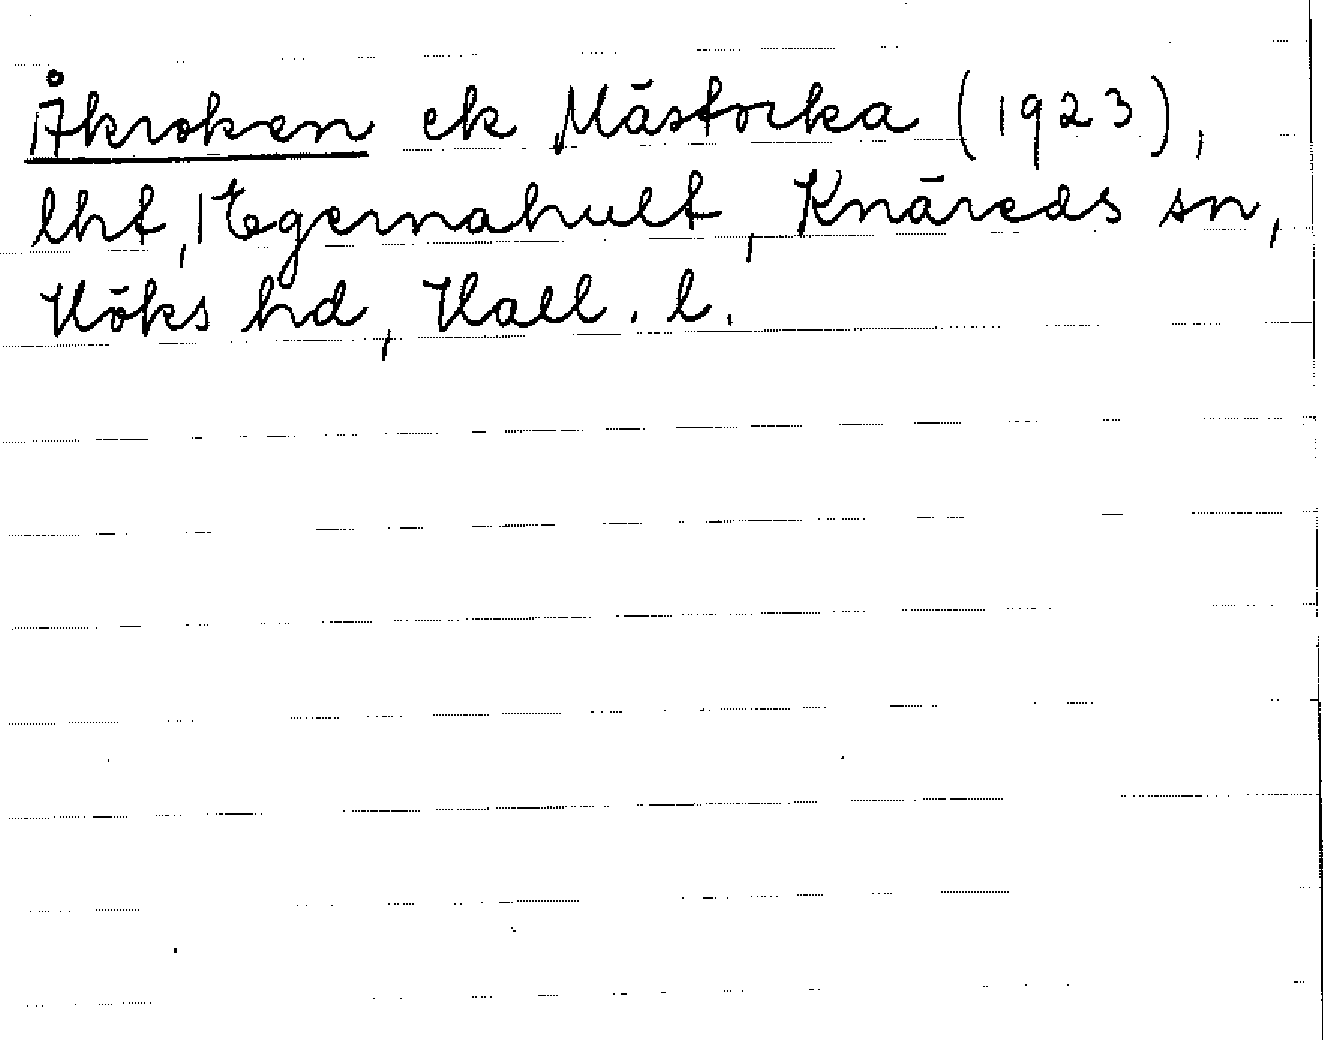 Åkroken ek Mästocka (1923),
lht, Egernahult, Knäreds sn,
Höks hd, Hall. l.